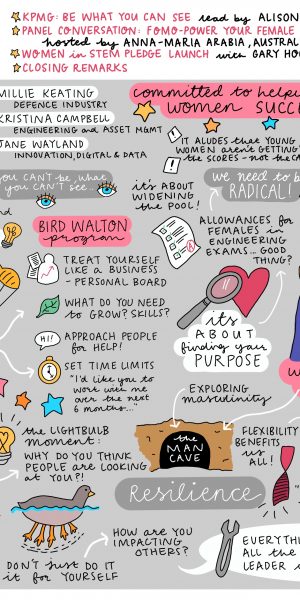 KPMG: BE WHAT YOU CAN SEE read by ALISON
PANEL CONVERSATION: FOMO-POWER YOUR FEMALE
hosted by ANNA-MARIA ARABIA, AUSTRAL
WOMEN in STEM PLEDGE LAUNCH with GARY HO
CLOSING REMARKS
MILLIE KEATING
DEFENCE INDUSTRY
KRISTINA CAMPBELL
ENGINEERING and ASSET MGMT
JANE WAYLAND
INNOVATION, DIGITAL & DATA
committed to helpi
WOMEN SUCC
IT ALUDES THAT YOUNG
WOMEN aren't GETTING
the SCORES - not the CA
you CAN'T be what
you CAN'T see...
it's ABOUT
WIDENING
the POOL!
we need to b
RADICAL!
BIRD WALTON
program
TREAT YOURSELF
LIKE A BUSINESS
- PERSONAL BOARD
WHAT DO YOU NEED
to GROW? SKILLS?
HI!
APPROACH PEOPLE
for HELP!
SET TIME LIMITS
"I'd like you to
work with me
over the next
6 months..."
ALLOWANCES for
FEMALES in
ENGINEERING
EXAMS... GOOD
THING?
it's
ABOUT
finding your
PURPOSE
EXPLORING
masculinity
the
MAN
CAVE
FLEXIBILITY
BENEFITS
us ALL!
the LIGHTBULB
moment:
WHY DO YOU THINK
PEOPLE are LOOKING
AT YOU?!
Resilience
HOW are YOU
IMPACTING
OTHERS?
DON'T JUST DO IT
it for YOURSELF
EVERYTHI
ALL the
LEADER i